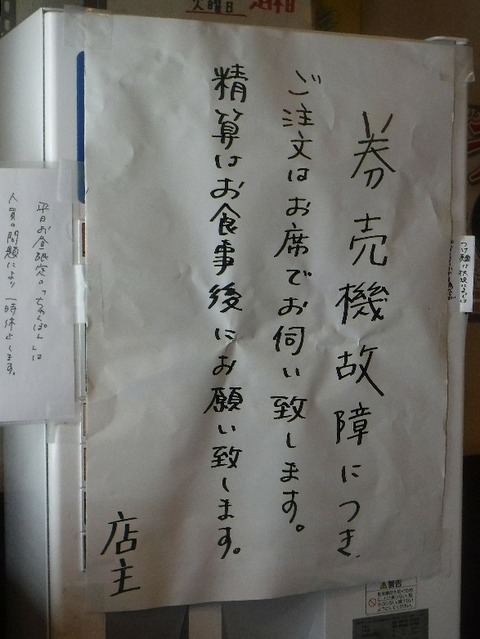 火曜日 定休日
券売機故障につき
ご注文はお席でお伺い致します。
精算はお食事後にお願い致します。
店主
平日お昼限定の「ちゃんぽん」は
人員の問題により一時休止します。
警告